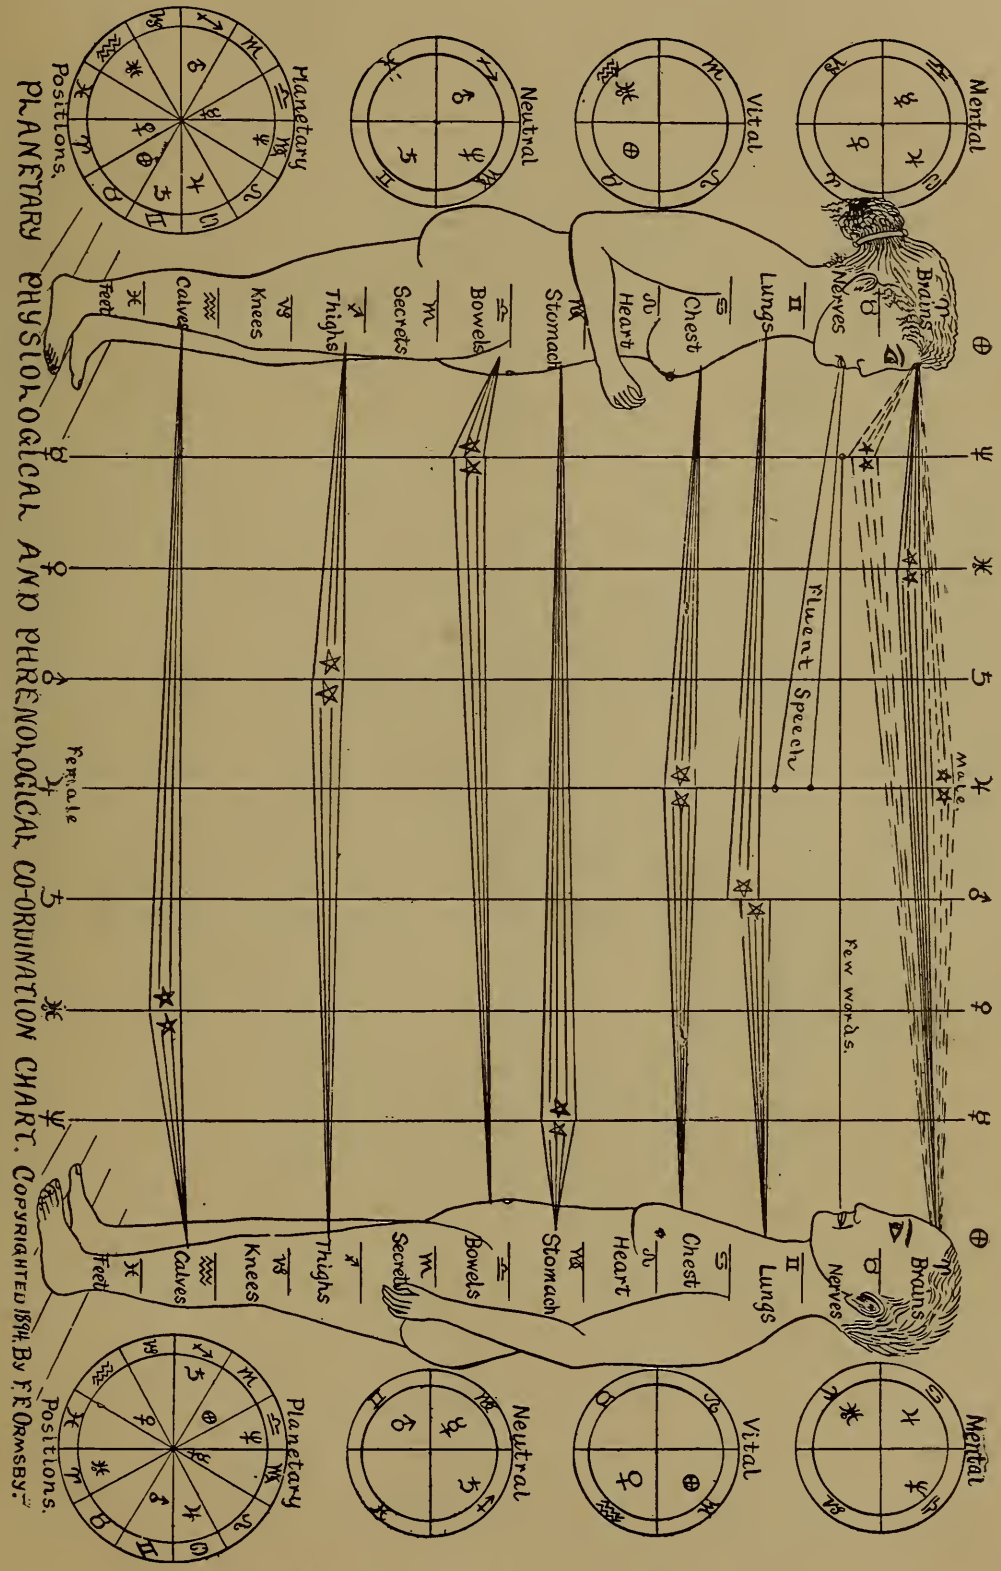 Mental
Vital
Neutral
Planetary
Positions.
♈
Brains
♉
Nerves
♊
Lungs
♋
Chest
♌
Heart
♍
Stomach
♎
Bowels
♏
Secrets
♐
Thighs
♑
Knees
♒
Calves
♓
Feet
⊕ ♆ ♅ ♄ ♃ ♂ ♀ ☿ ⊕
Male.
Fluent Speech
Few words.
☿ ♀ ♂ ♃ ♄ ♅ ♆
Female
♈
Brains
♉
Nerves
♊
Lungs
♋
Chest
♌
Heart
♍
Stomach
♎
Bowels
♏
Secrets
♐
Thighs
♑
Knees
♒
Calves
♓
Feet
Mental
Vital
Neutral
Planetary
Positions.
PLANETARY PHYSIOLOGICAL AND PHRENOLOGICAL CO-ORDINATION CHART. COPYRIGHTED 1894. BY F.F. ORMSBY.